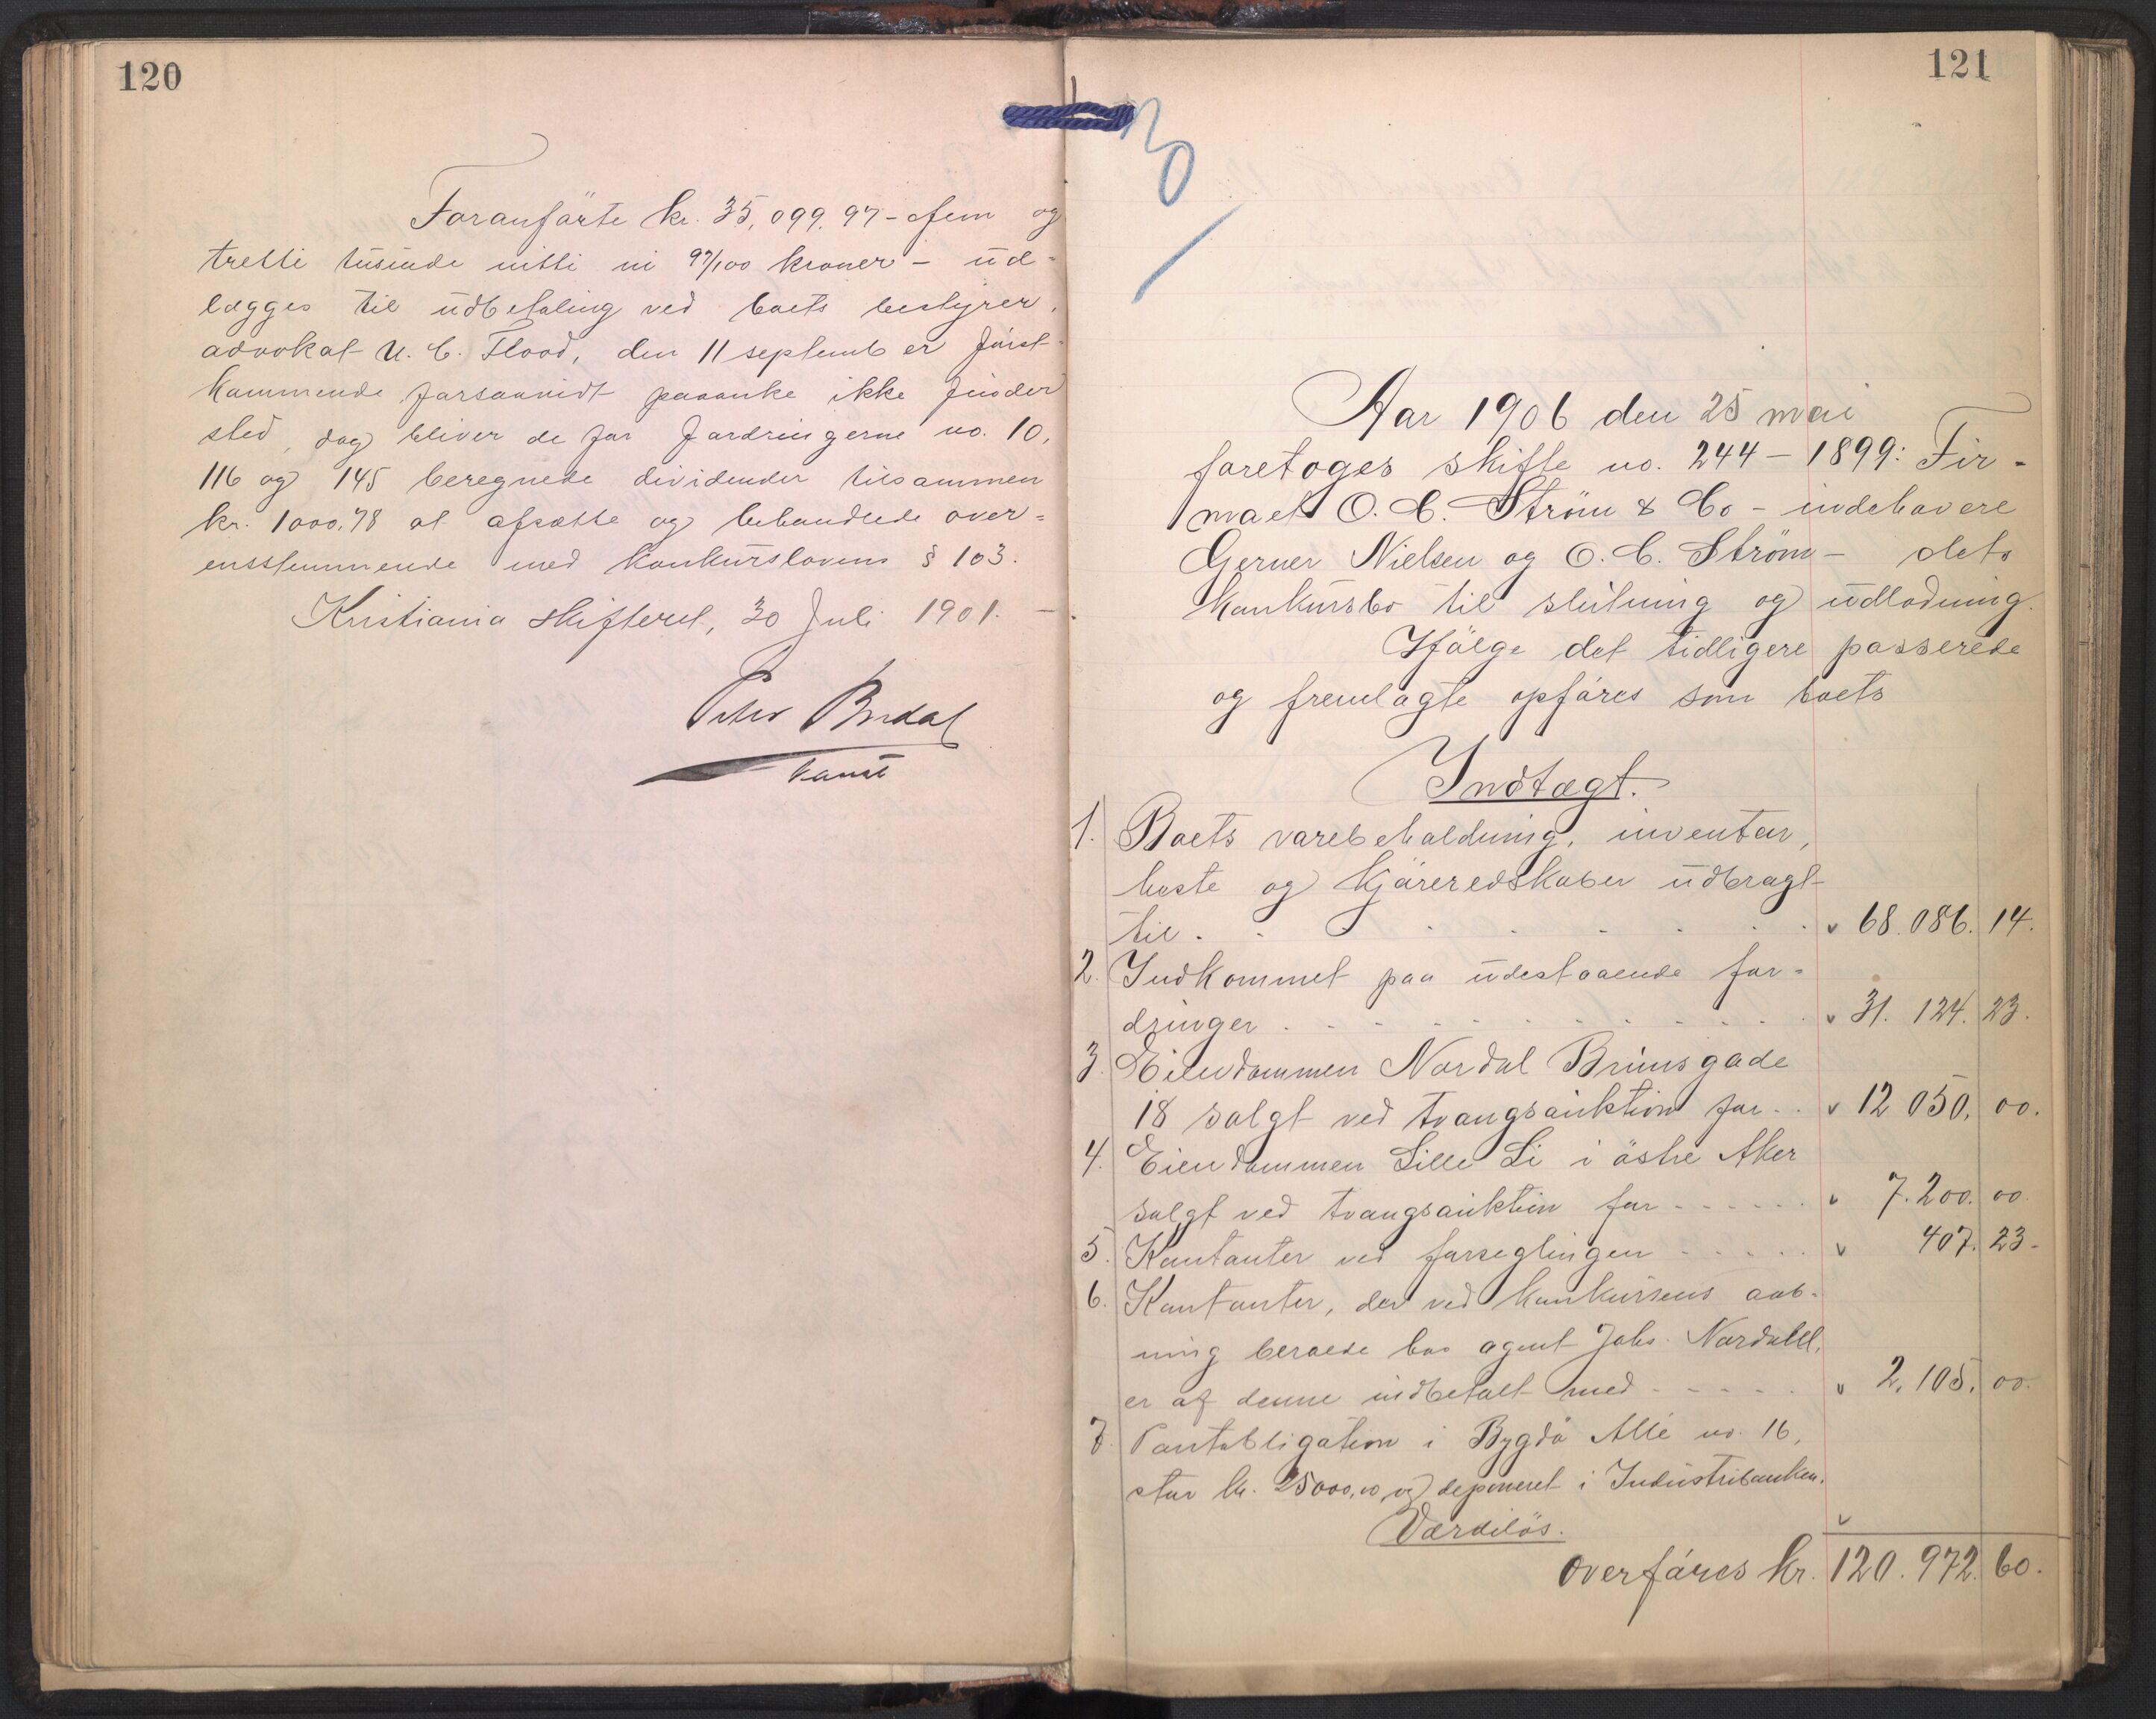 120
Foranförte kr. 35,099.97 - fem og
tretti tusinde nitti ni 97/100 kroner - ud-
lægges til udbetaling ved boets bestyrer,
advokat U. C. Flood, den 11 september först-
kommende forsaavidt paaanke ikke finder
sted, dog bliver de for fordringerne no. 10,
116 og 145 beregnede dividender tilsammen
kr. 1000.78 at afsætte og behandlede over=
ensstemmende med konkurslovens § 103.
Kristiania skifteret, 30 Juli 1901. -
Peter Bredal
const
121
30
Aar 1906 den 25 mai
foretoges skifte no. 244 - 1899: Fir-
maet O. C. Ström & Co - indehavere
Gerner Nielsen og O. C. Ström - dets
konkursbo til slutning og udlodning.
Ifölge det tidligere passerede
og fremlagte opföres som boets
Indtægt.
1. Boets varebeholdning, inventar,
heste og kjöreredskaber udbragt
til . . . . . . . . 68.086. 14.
2. Indkommet paa udestaaende for-
dringer . . . . . . . . 31. 124. 23.
3. Eiendommen Nordal Brunsgade
18 solgt ved tvangsauktion for . . 12 050. 00.
4. Eiendommen Lille Li i östre Aker
solgt ved tvangsauktion for - - - - - - 7.200. 00.
5. Kontanter ved forseglingen - - - - - 407. 23-
6. Kontanter, der ved konkursens aab-
ning beroede hos agent Johs. Nordahl,
er af denne indbetalt med - - - - - 2.105. 00.
7. Pantobligation i Bygdö Allé no. 16,
stor kr. 25000,00 og deponeret i Industribanken.
Værdilös.
Overföres kr. 120.972. 60.